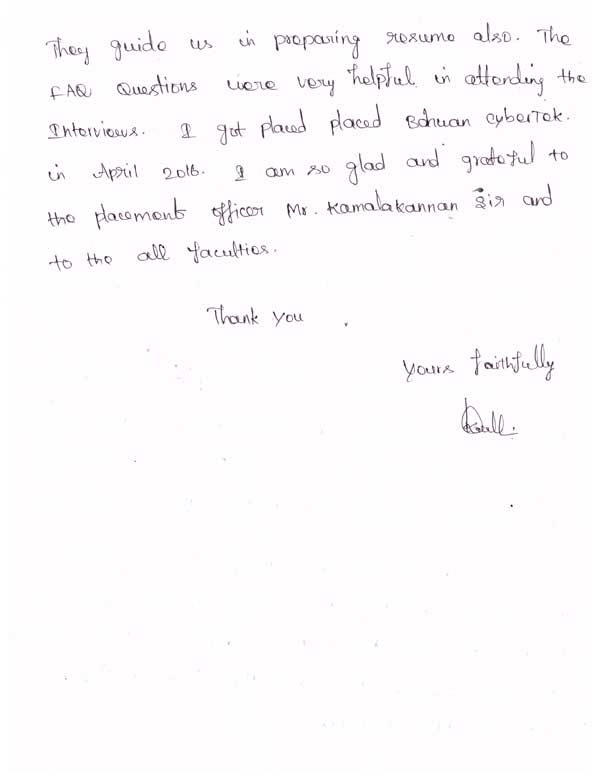 They guide us in preparing resume also. The
FAQ Questions were very helpful in attending the
Interviews. I got placed placed Bahwan cyberTek.
in April 2016. I am so glad and grateful to
the placement officer Mr. Kamalakannan Sir and
to the all faculties.
Thank you
yours faithfully